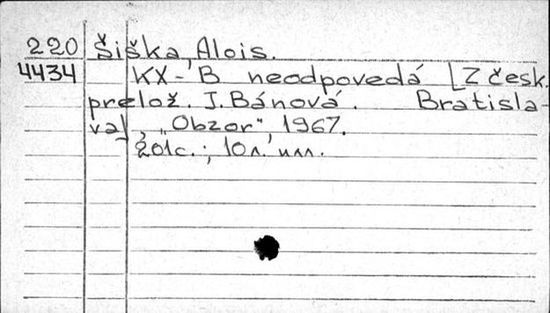 220 Šiška, Alois.
4434 KX-B neodpovedá [Z česk.
prelož. J. Bánová. Bratisla-
va], „Obzor“, 1967.
201с.; 10л. илл.